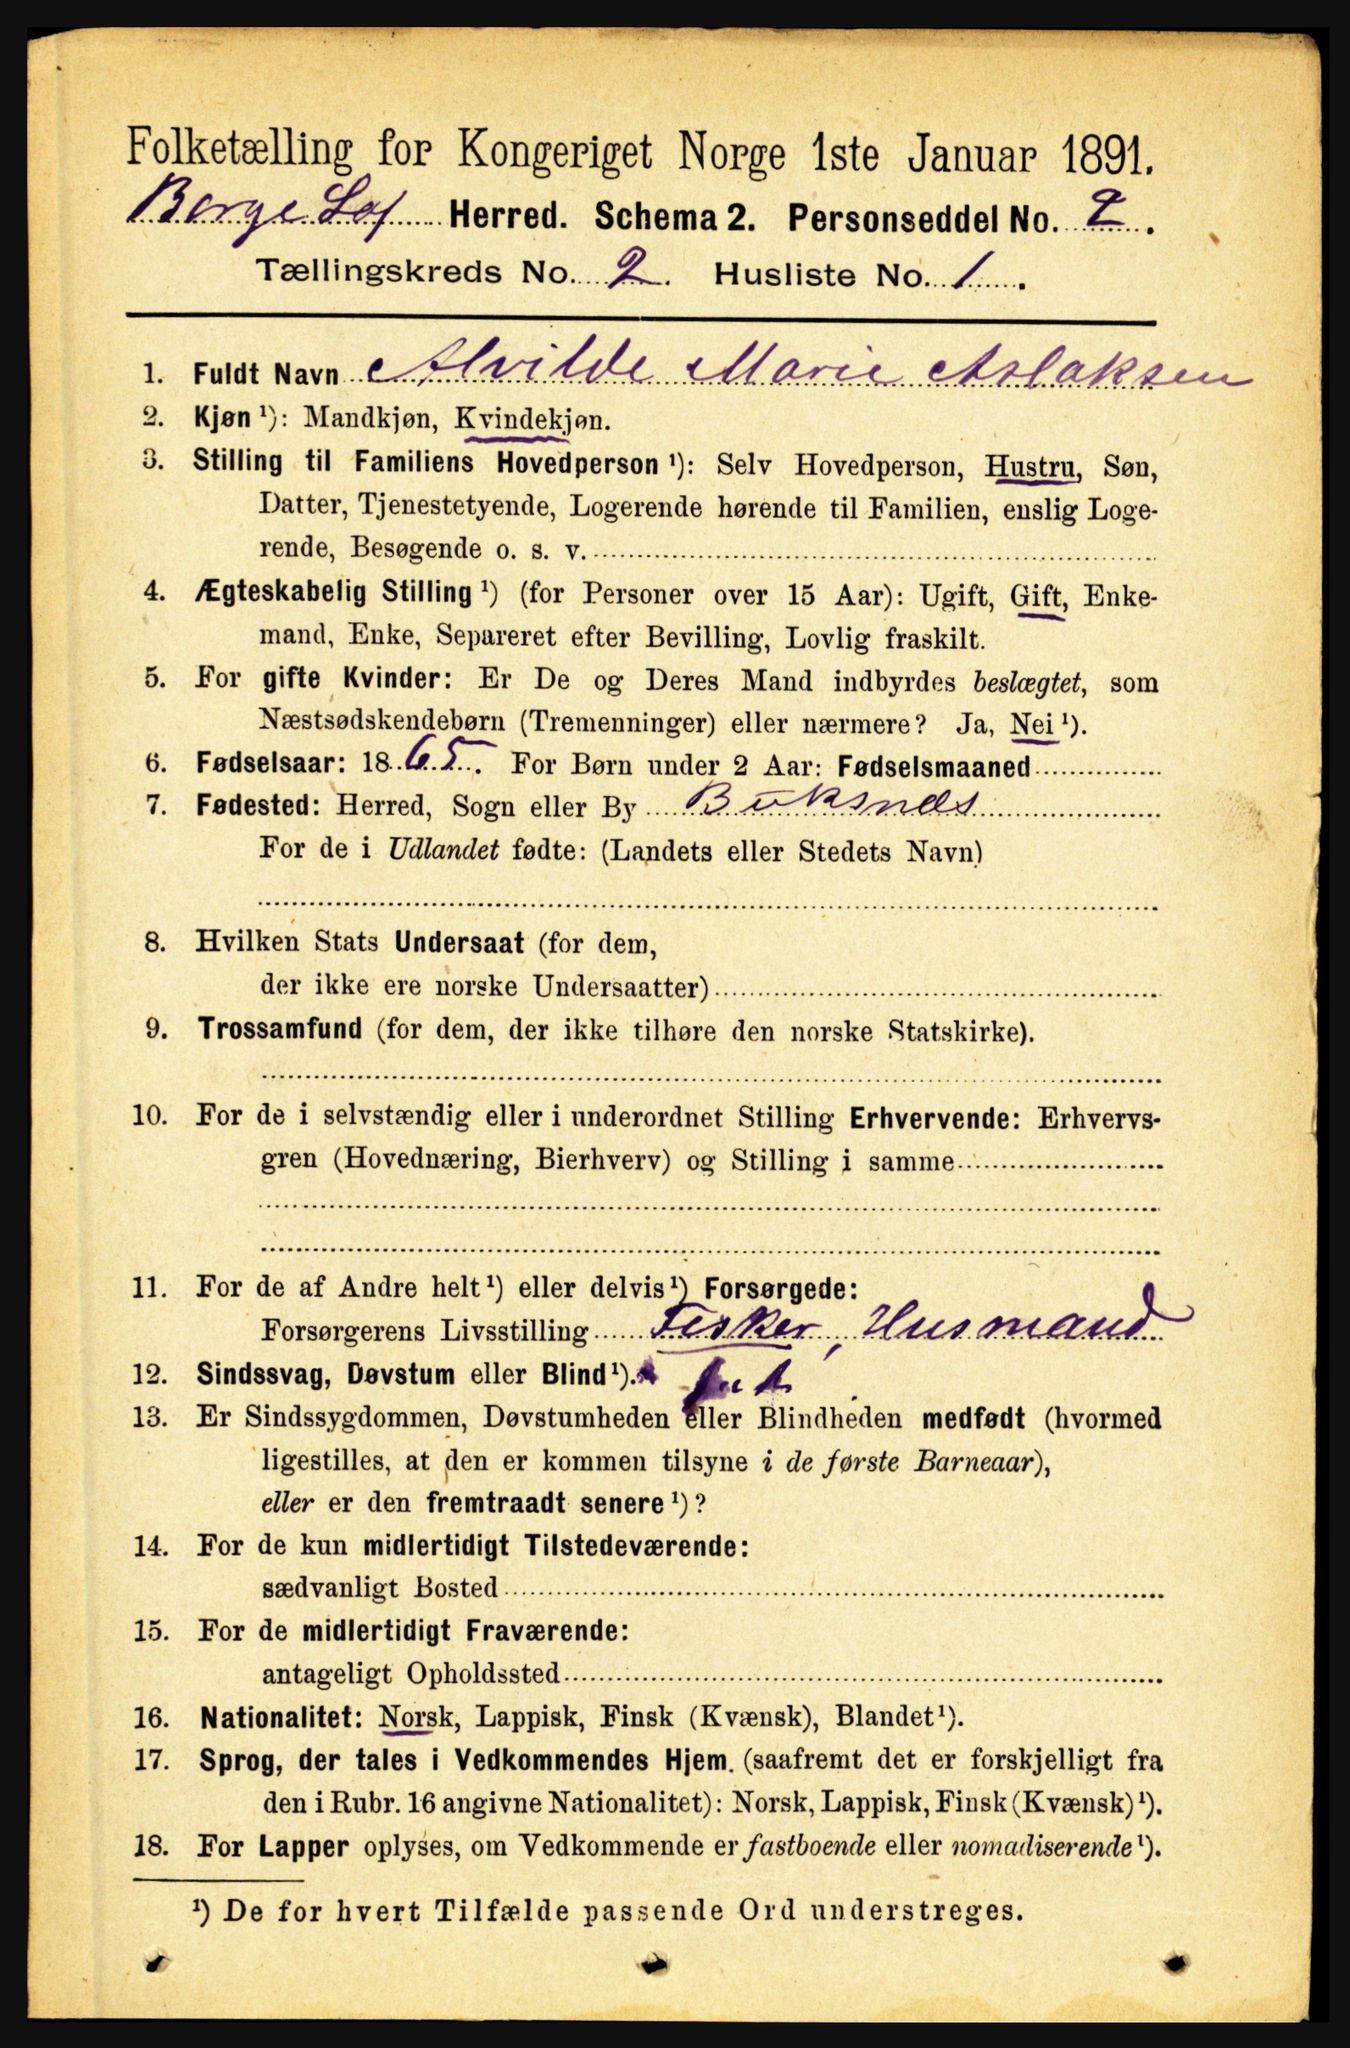 Folketælling for Kongeriget Norge 1ste Januar 1891.
Borge Lof Herred. Schema 2. Personseddel No. 2.
Tællingskreds No. 2. Husliste No. 1.
1. Fuldt Navn Alvilde Marie Aslaksen
2. Kjøn ¹): Mandkjøn, Kvindekjøn.
3. Stilling til Familiens Hovedperson ¹): Selv Hovedperson, Hustru, Søn,
Datter, Tjenestetyende, Logerende hørende til Familien, enslig Loge-
rende, Besøgende o. s. v.
4. Ægteskabelig Stilling ¹) (for Personer over 15 Aar): Ugift, Gift, Enke-
mand, Enke, Separeret efter Bevilling, Lovlig fraskilt.
5. For gifte Kvinder: Er De og Deres Mand indbyrdes beslægtet, som
Næstsødskendebørn (Tremenninger) eller nærmere? Ja, Nei ¹).
6. Fødselsaar: 1865. For Børn under 2 Aar: Fødselsmaaned
7. Fødested: Herred, Sogn eller By Buksnes
For de i Udlandet fødte: (Landets eller Stedets Navn)
8. Hvilken Stats Undersaat (for dem,
der ikke ere norske Undersaatter)
9. Trossamfund (for dem, der ikke tilhøre den norske Statskirke).
10. For de i selvstændig eller i underordnet Stilling Erhvervende: Erhvervs-
gren (Hovednæring, Bierhverv) og Stilling i samme
11. For de af Andre helt ¹) eller delvis ¹) Forsørgede:
Forsørgerens Livsstilling Fisker, Husmand
12. Sindssvag, Døvstum eller Blind ¹).
13. Er Sindssygdommen, Døvstumheden eller Blindheden medfødt (hvormed
ligestilles, at den er kommen tilsyne i de første Barneaar),
eller er den fremtraadt senere ¹)?
14. For de kun midlertidigt Tilstedeværende:
sædvanligt Bosted
15. For de midlertidigt Fraværende:
antageligt Opholdssted
16. Nationalitet: Norsk, Lappisk, Finsk (Kvænsk), Blandet ¹).
17. Sprog, der tales i Vedkommendes Hjem. (saafremt det er forskjelligt fra
den i Rubr. 16 angivne Nationalitet): Norsk, Lappisk, Finsk (Kvænsk) ¹).
18. For Lapper oplyses, om Vedkommende er fastboende eller nomadiserende ¹).
¹) De for hvert Tilfælde passende Ord understreges.